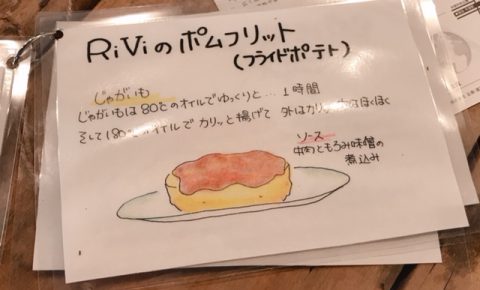 RiViのポムフリット
(フライドポテト)
じゃがいも
じゃがいもは80℃のオイルでゆっくりと… 1時間
そして180℃ オイルで カリッと揚げて 外はカリッ ほくほく
ソース
牛肉ともろみ味噌の
煮込み